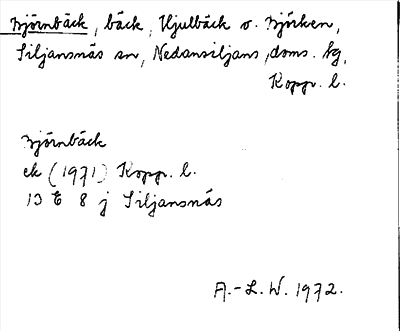 Björnbäck, bäck, Hjulbäck o. Björken,
Siljansnäs sn, Nedansiljans doms. hg,
Kopp. l.
Björnbäck
ek (1971) Kopp. l.
13 E 8 j Siljansnäs
A.-L. W. 1972.